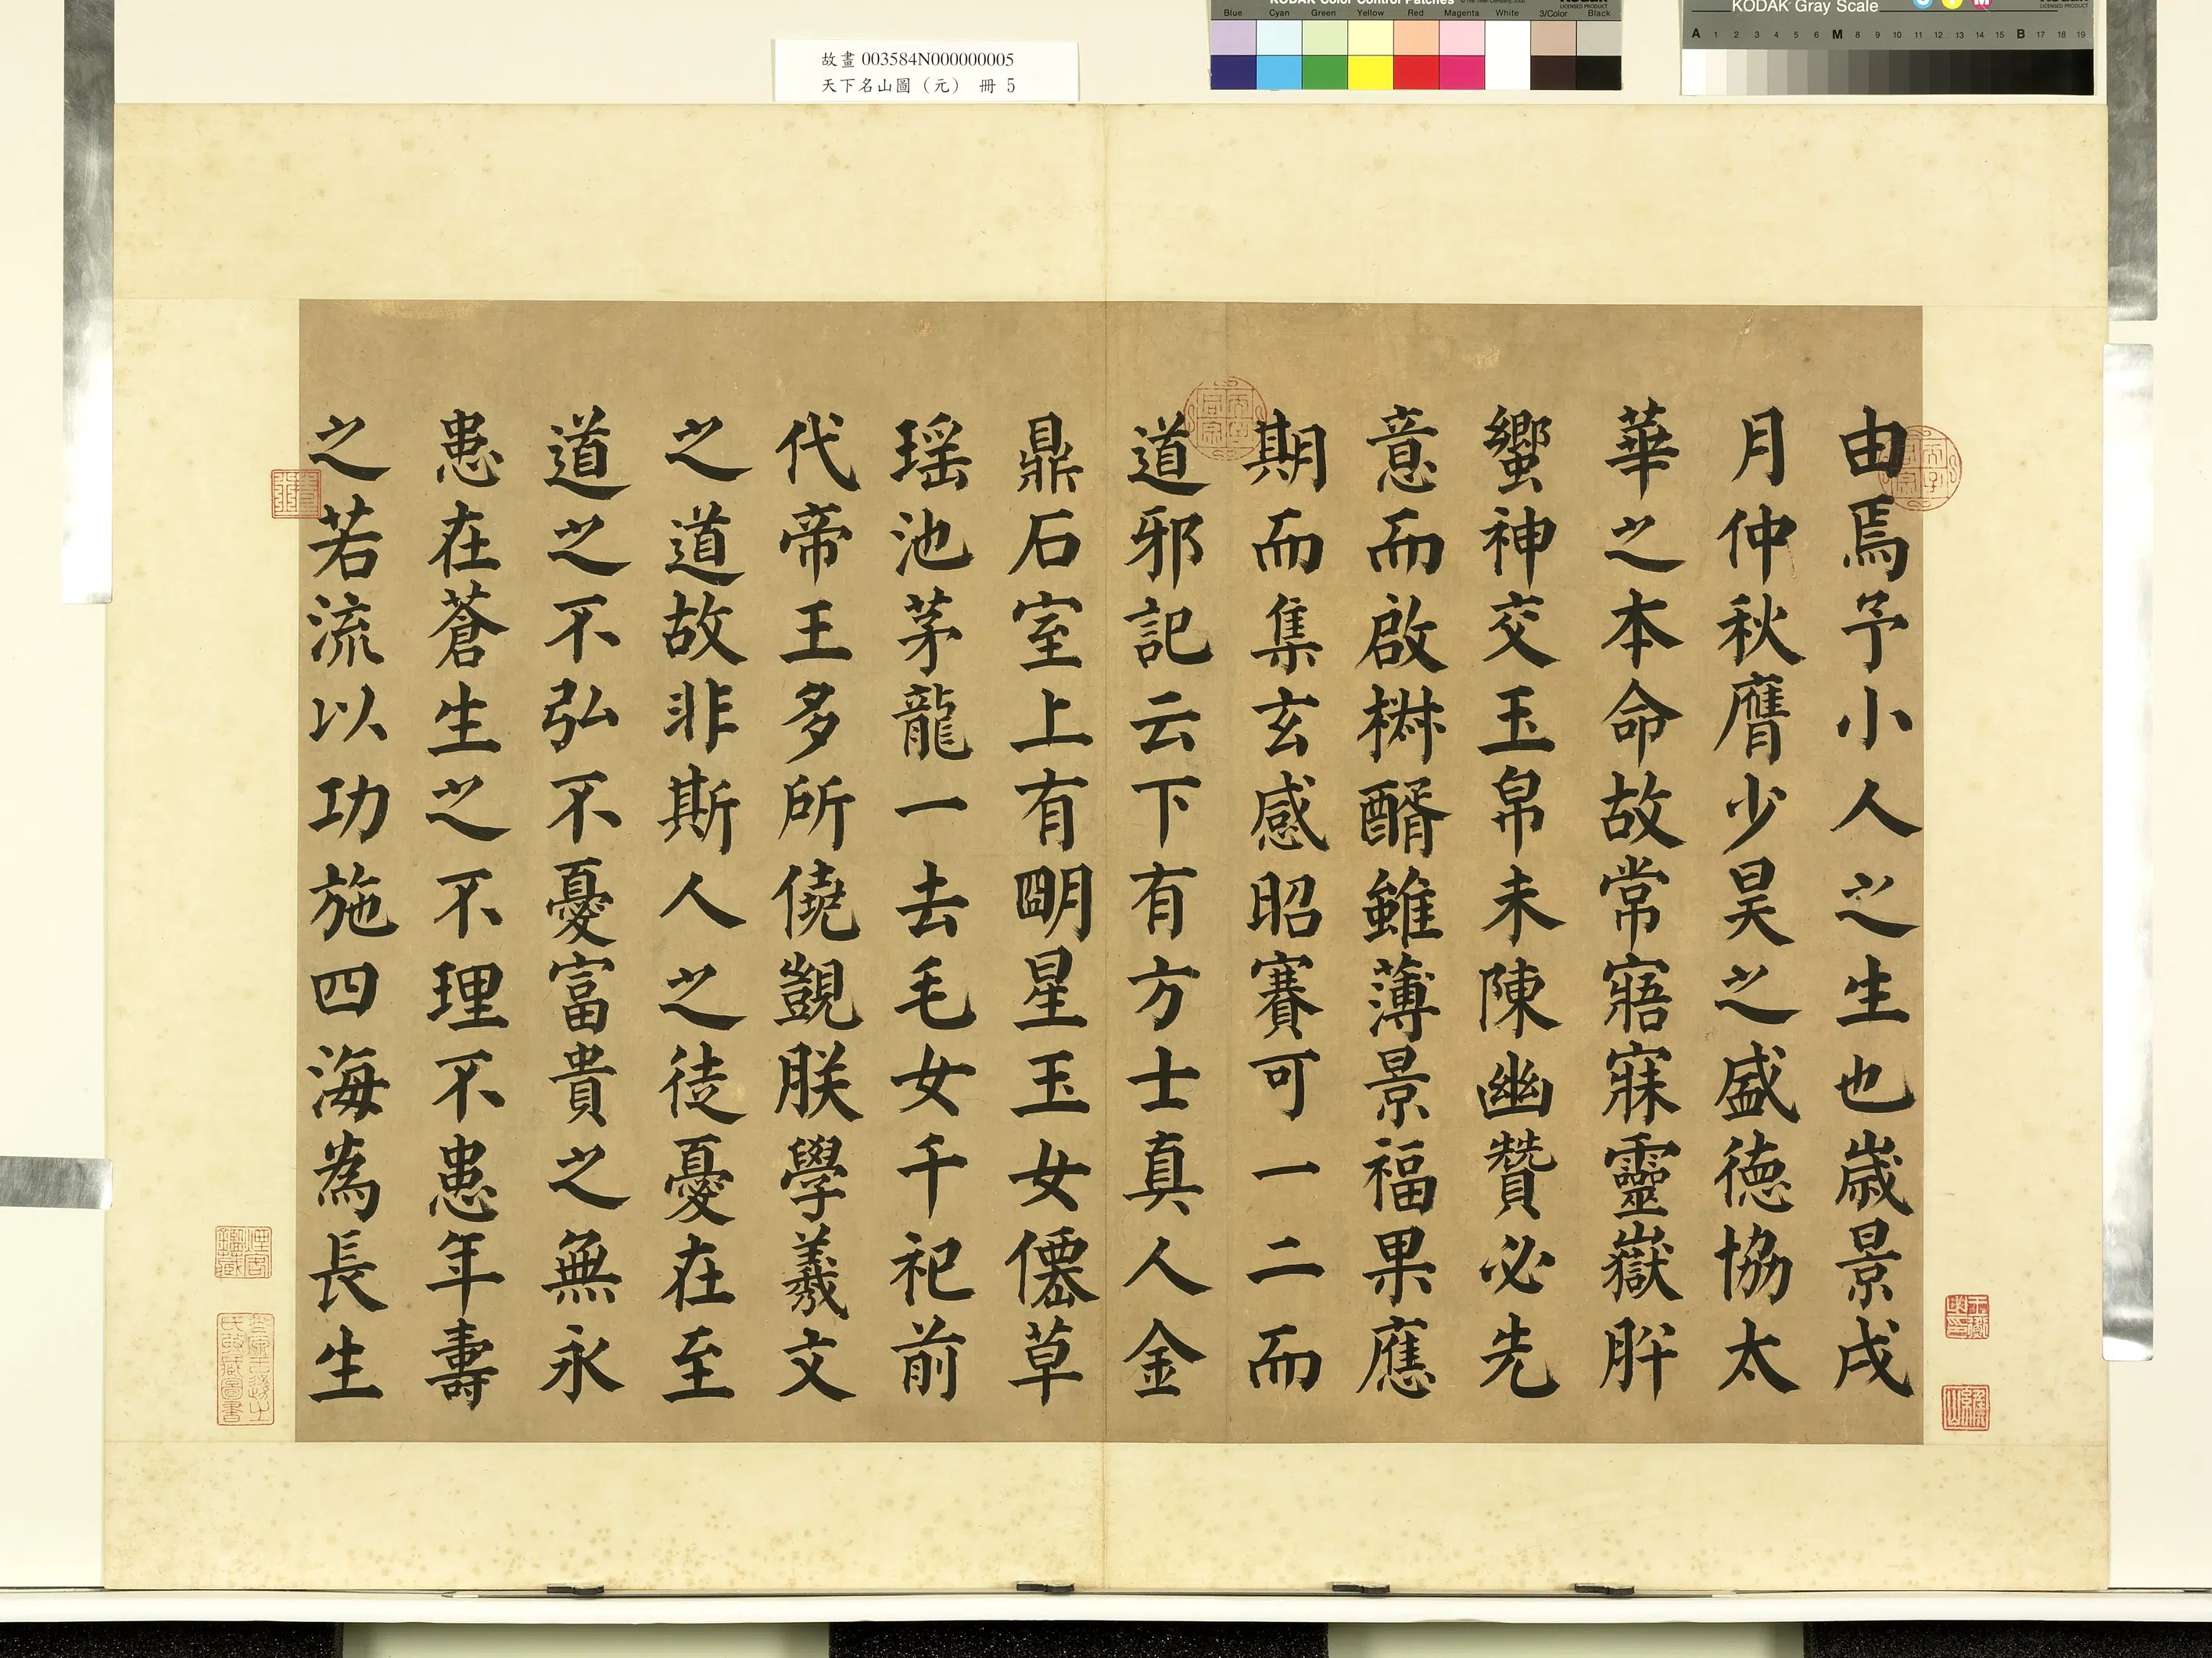 故畫 003584N000000005
天下名山圖（元） 冊 5
KODAK Color Control Patches
Blue Cyan Green Yellow Red Magenta White 3/Color Black
KODAK Gray Scale
LICENSED PRODUCT
A 1 2 3 4 5 6 M 8 9 10 11 12 13 14 15 B 17 18 19
由焉予小人之生也歲景戌
月仲秋膺少昊之盛德協太
華之本命故常寤寐靈嶽肸
蠁神交玉帛未陳幽贊必先
意而啟椒醑雖薄景福果應
期而集玄感昭賽可一二而
道邪記云下有方士真人金
鼎石室上有朙星玉女僊草
瑶池茅龍一去毛女千祀前
代帝王多所僥覬朕學羲文
之道故非斯人之徒憂在至
道之不弘不憂富貴之無永
患在蒼生之不理不患年壽
之若流以功施四海為長生